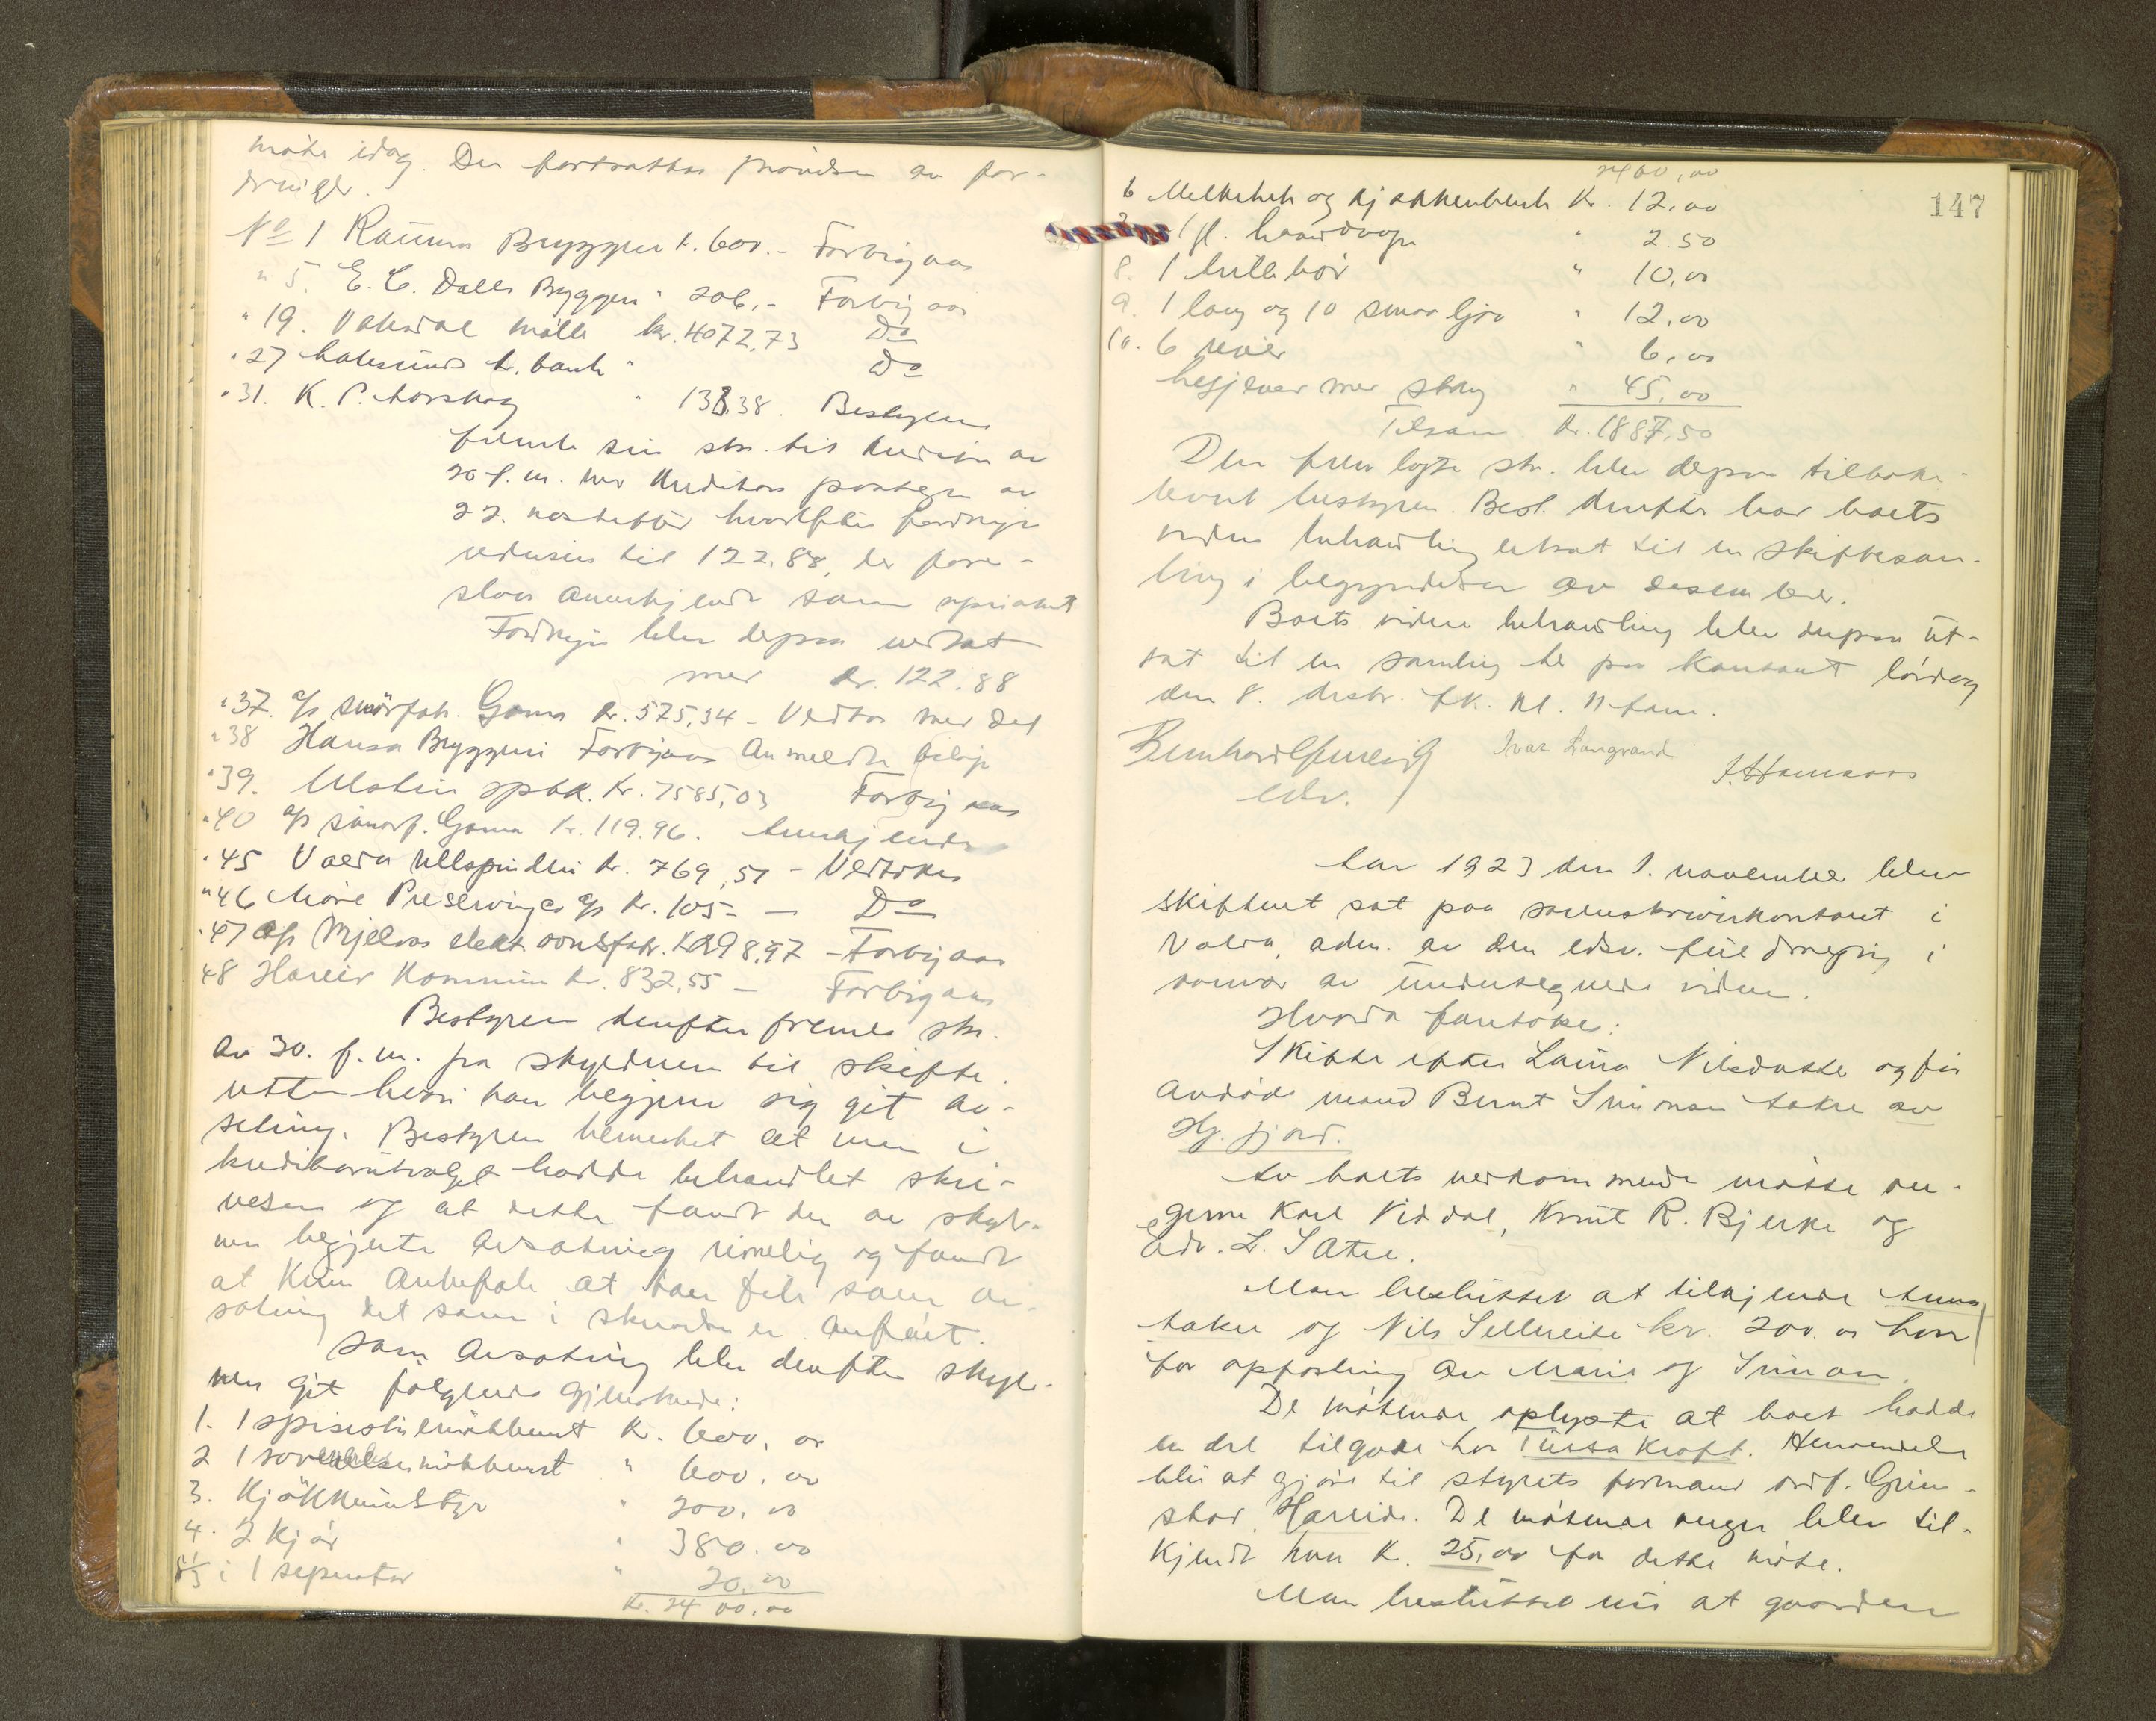 møte idag. Der fortsattes prøvelsen av for-
dringer.
No 1 Rauma Bryggeri k. 600.- Forbigaas
" 5. E. C. Dalls Bryggeri " 206,- Forbigaas
" 19. Vaksdal mølle kr. 4072,73 Do
" 27 Aalesunds kr. bank " Do
" 31. K. P. Aarskog " 133.38. Bestyren
fremla sin skr. til kreditor av
20 f. m. med kreditors paategn. av
22. næstefter hvorefter fordringen
reduseres til 122,88, der fore-
slaaes anerkjendt som uprioritert
Fordringen blev derpaa vedtat
med kr. 122.88
" 37. A/s smørfab. Goma kr. 575,34 - Vedtas med det
" 38 Hansa Bryggeri Forbigaas anmeldte beløp
" 39. Ulstein spbk. kr. 7585,03 Forbigaas
" 40 A/s smørf. Goma kr. 119.96. Anerkjendes
" 45 Volda Ullspinderi kr. 769,51 - Vedtokes
" 46 Møre Preserving Co A/s kr. 105.- — Do
" 47 A/s Mjelvas elekt. ovnsfabr. kr. 298.97 - Forbigaas
48 Hareid Kommune kr. 832,55 - Forbigaas
Bestyren derefter fremla skr.
av 30. f. m. fra skyldneren til skifte-
retten hvori han begjærer sig git av-
sætning. Bestyren bemerket at man i
kreditorutvalget hadde behandlet skri-
velsen og at dette fandt den av skyld-
neren begjærte avsætning rimelig og fandt
at kunne anbefale at han fik som av-
sætning det som i skrivelsen er anført.
Som avsætning blev derefter skyld-
neren git følgende gjenstande:
1. 1 spisestuemøblement kr. 600,00
2 1 soveværelsesmøblement " 600,00
3. Kjøkkenutstyr " 200,00
4. 2 kjør " 380.00
5. 1/3 i 1 separator " 20,00
Kr. 2400,00
147
2400,00
6 Melkebøtte og kjøkkenbenk Kr. 12,00
7 1 fl. haandvogn " 2.50
8. 1 hullebør " 10,00
9. 1 lang og 10 smaa ljaa " 12,00
10. 6 river " 6,00
hesjestaur med streng " 45,00
Tilsam. Kr. 1887,50
Den fremlagte skr. blev derpaa tilbake-
levert bestyren. Best. derefter bad boets
videre behandling utsat til en skiftesam-
ling i begyndelsen av desember.
Boets videre behandling blev derpaa ut-
sat til en samling her paa kontoret lørdag
den 8. desbr. fk. kl. 11 form.
Ivar Langvand
J. Hamsaas
edsv.
Aar 1923 den 1. november blev
skifteret sat paa sorenskriverkontoret i
Volda, adm. av den edsv. fuldmægtig i
nærvær av undertegnede vidner.
Hvorda foretokes:
Skifte efter Laura Nilsdatter og før
avdøde mand Bernt Simonsen Aakre av
Hj. fjord.
Av boets vedkommende møtte ver-
gerne Karl Viddal, Knut R. Bjerke og
adv. L. Sæter.
Man besluttet at tilkjende Anna
Aakre og Nils Sellereite kr. 200.00 hver
for opfostring av Marie og Simon.
De møtende oplyste at boet hadde
en del tilgode hos Tussa Kraft. Henvendelse
blir at gjøre til styrets formand ordf. Grim-
stad, Hareid. De møtende verger blev til-
kjendt hver k. 25,00 for dette møte.
Man besluttet nu at gaarden